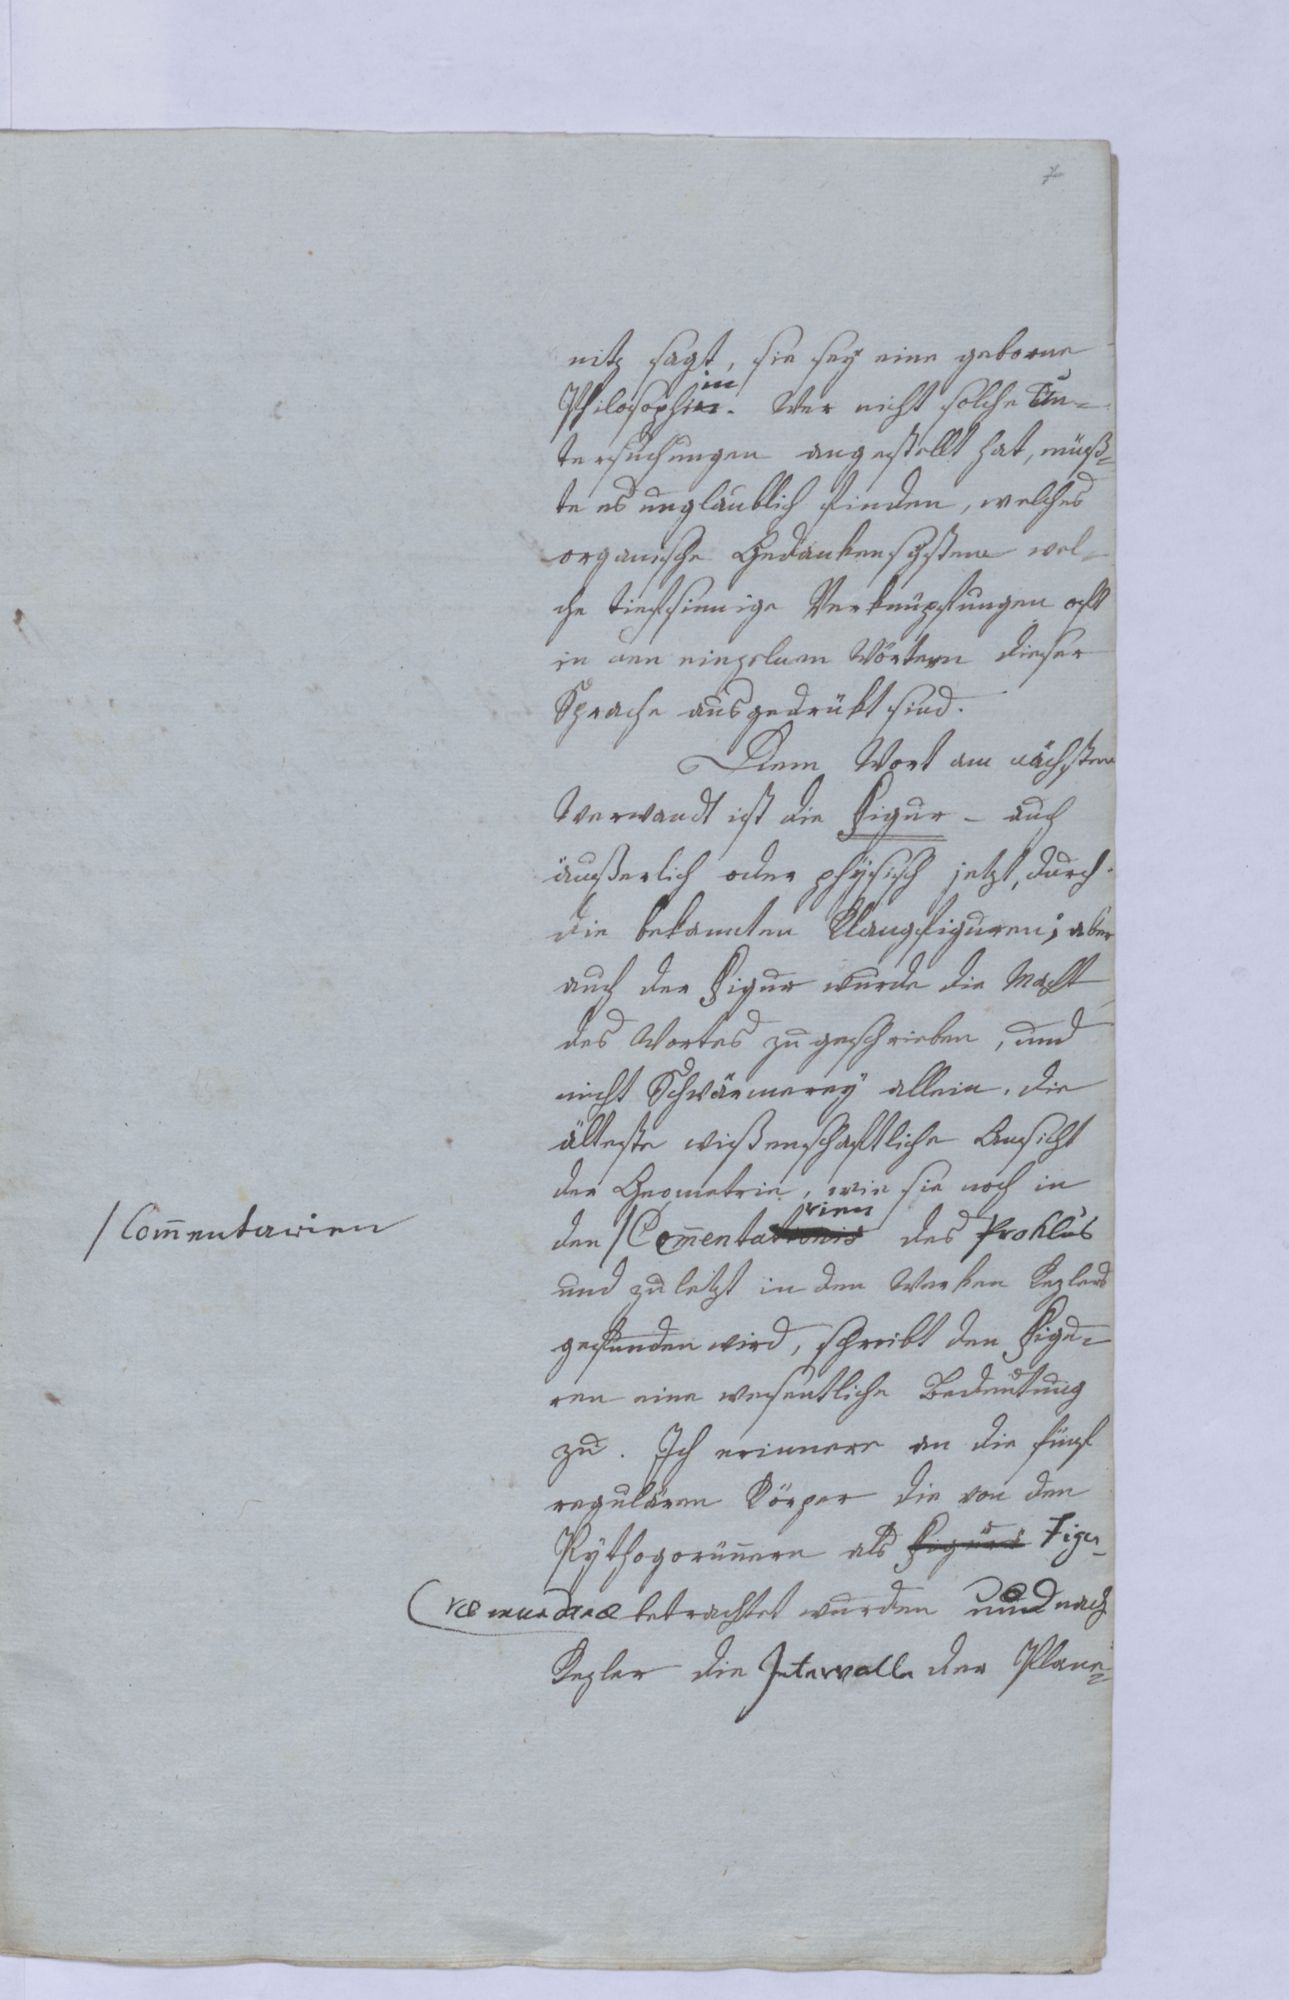 7
nitz sagt, sie sey eine geborne
Philosophin. Wer nicht solche Un-
tersuchungen angestellt hat, müß-
te es unglaublich finden, welches
organische Gedankensystem wel-
che tiefsinnige Verknüpfungen oft
in den einzelnen Wörtern dieser
Sprache ausgedrükt sind.
Dem Wort am nächsten
Verwandt ist die Figur - auch
äußerlich oder physisch jetzt, durch
die bekannten Klangfiguren; aber
auch der Figur wurde die Macht
des Wortes zugeschrieben, und
nicht Schwärmerey allein, die
älteste wißenschaftliche Ansicht
der Geometrie, wie sie noch in
/Com̄entarien
den /Com̄entarien des Proklus
und zuletzt in den Werken Keplers
gefunden wird, schreibt den Figu-
ren eine wesentliche Bedeutung
zu. Ich erinnere an die fünf
regulären Körper die von den
Pythagoräern als Figurae Figu-
rae mundanae betrachtet wurden und nach
Kepler die Intervalle der Plane-